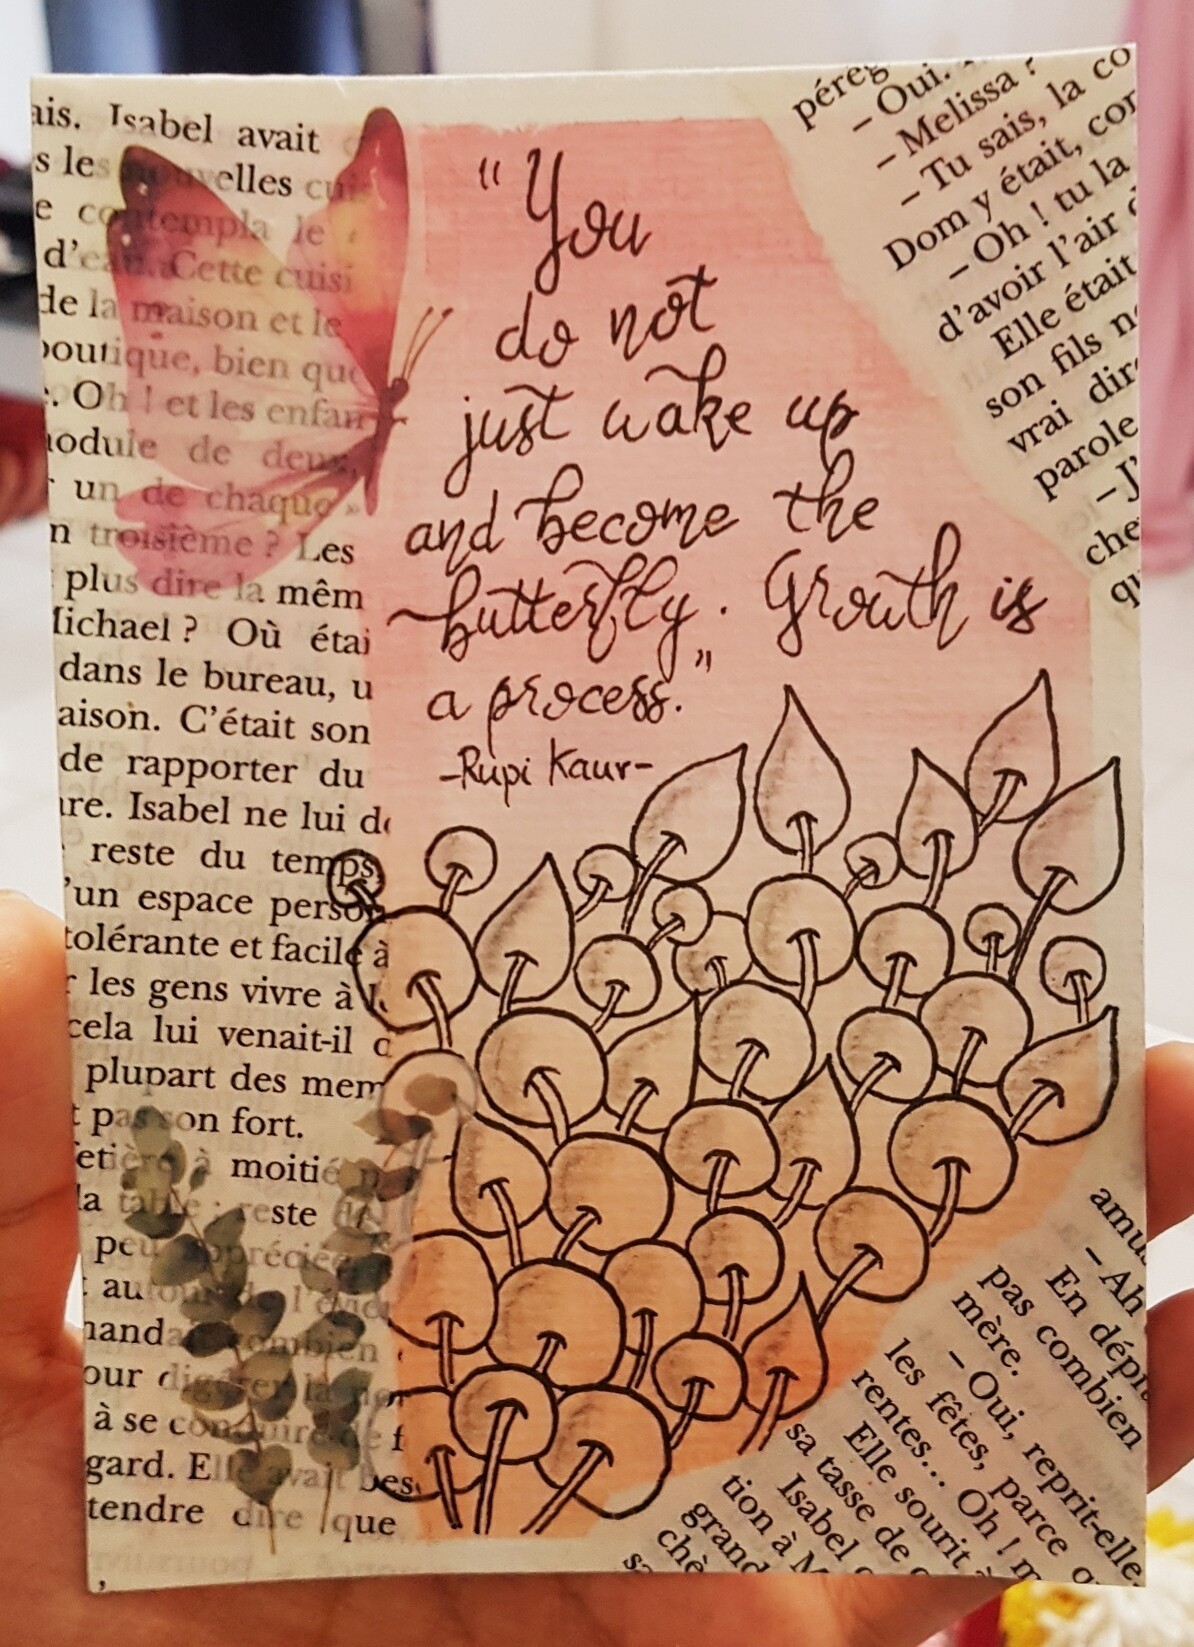 ais. Isabel avait
s les nouvelles cui
e contempla le
d'eau. Cette cuisi
de la maison et le
boutique, bien que
. Oh ! et les enfan
module de deux,
un de chaque »
n troisième ? Les
plus dire la mêm
Michael ? Où étai
dans le bureau, u
aison. C'était son
de rapporter du
ire. Isabel ne lui de
reste du temps,
'un espace person
tolérante et facile à
r les gens vivre à l
cela lui venait-il d
plupart des mem
t pas son fort.
etière à moitié
la table : reste
peu appréciée
autour de l'
manda combien
our digérer la
à se conduire de f
gard. Elle avait bes
tendre dire que
"You
do not
just wake up
and become the
butterfly. Growth is
a process."
-Rupi Kaur-
péreg
– Oui.
– Melissa ?
– Tu sais, la co
Dom y était, con
– Oh ! tu la
d'avoir l'air
Elle était
son fils n
vrai dire
parole
– J'
che
qu
amu
– Ah
En dépi
pas combien
mère.
– Oui, reprit-elle
les fêtes, parce q
rentes... Oh ! m
Elle sourit à
sa tasse de
Isabel
tion à M
grand
chè
sa